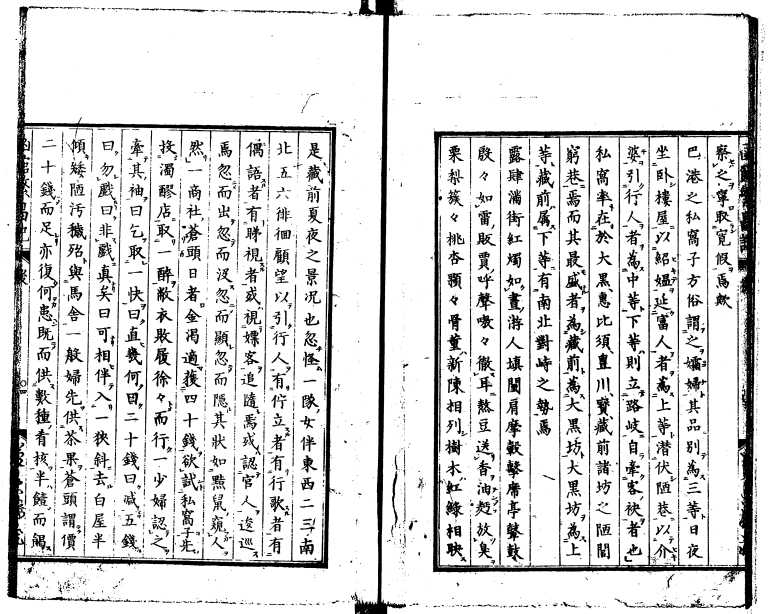 察之寧取寬假焉歟
巴港之私窩子方俗謂之孀婦其品別為三等日夜
坐臥樓屋以紹媼延富人者為上等潜伏陋巷以介
婆引行人者為中等下等則立路岐自牽客袂者也
私窩率在於大黑惠比須豊川寶藏前諸坊之陋閭
窮巷焉而其最盛者為藏前為大黑坊大黑坊為上
等藏前属下等有南北對峙之勢焉
露肆滿街紅燭如晝游人塡闐肩摩轂擊席亭鼙鼓
殷々如雷販賈呼聲嗷々徹耳熱豆送香油麪放臭
栗梨簇々桃杏顆々骨董新陳相列樹木紅綠相映
是藏前夏夜之景况也忽怪一隊女伴東西二三南
北五六徘徊顧望以引行人有佇立者有行歌者有
偶語者有睇視者或視嫖客追隨焉或認官人逡巡
焉忽而出忽而沒忽而顯忽而隱其狀如黠鼠窺人
然一商社蒼頭日者金渴適獲四十錢欲試私窩子先
投濁醪店取一醉敝衣敗履徐々而行一少婦認之
牽其袖曰乞取一快曰直幾何曰二十錢曰减五錢
曰勿戲曰非戲真矣曰可相伴入一狹斜去白屋半
傾矮陋汚穢殆與馬舍一般婦先供茶果蒼頭謂價
二十錢而足亦復何患既而供數種肴核半饐而餲